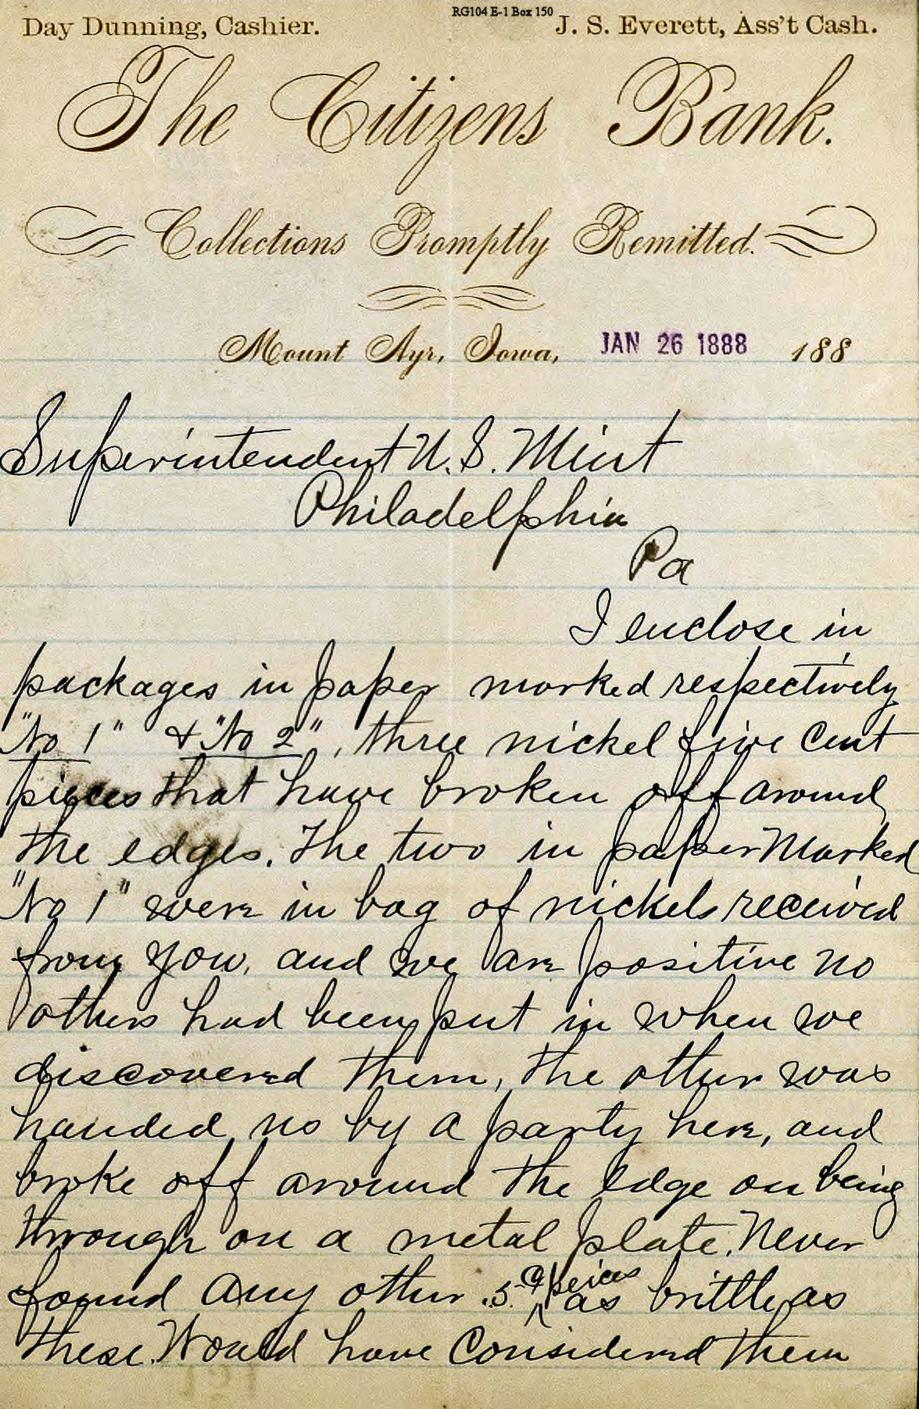 RG104 E-1 Box 150
Day Dunning, Cashier. J. S. Everett, Ass't Cash.
The Citizens Bank.
Collections Promptly Remitted.
Mount Ayr, Iowa, JAN 26 1888 188
Superintendent U.S. Mint
Philadelphia
Pa
I enclose in
packages in paper marked respectively
"No 1" & "No 2", three nickel five cent
pieces that have broken off around
the edges. The two in paper marked
"No 1" were in bag of nickels received
from you, and we are positive no
others had been put in when we
discovered them, the other was
handed us by a party here, and
broke off around the edge on being
through on a metal plate. Never
found any other .5 ¢ peices as brittle as
these. Would have considered them